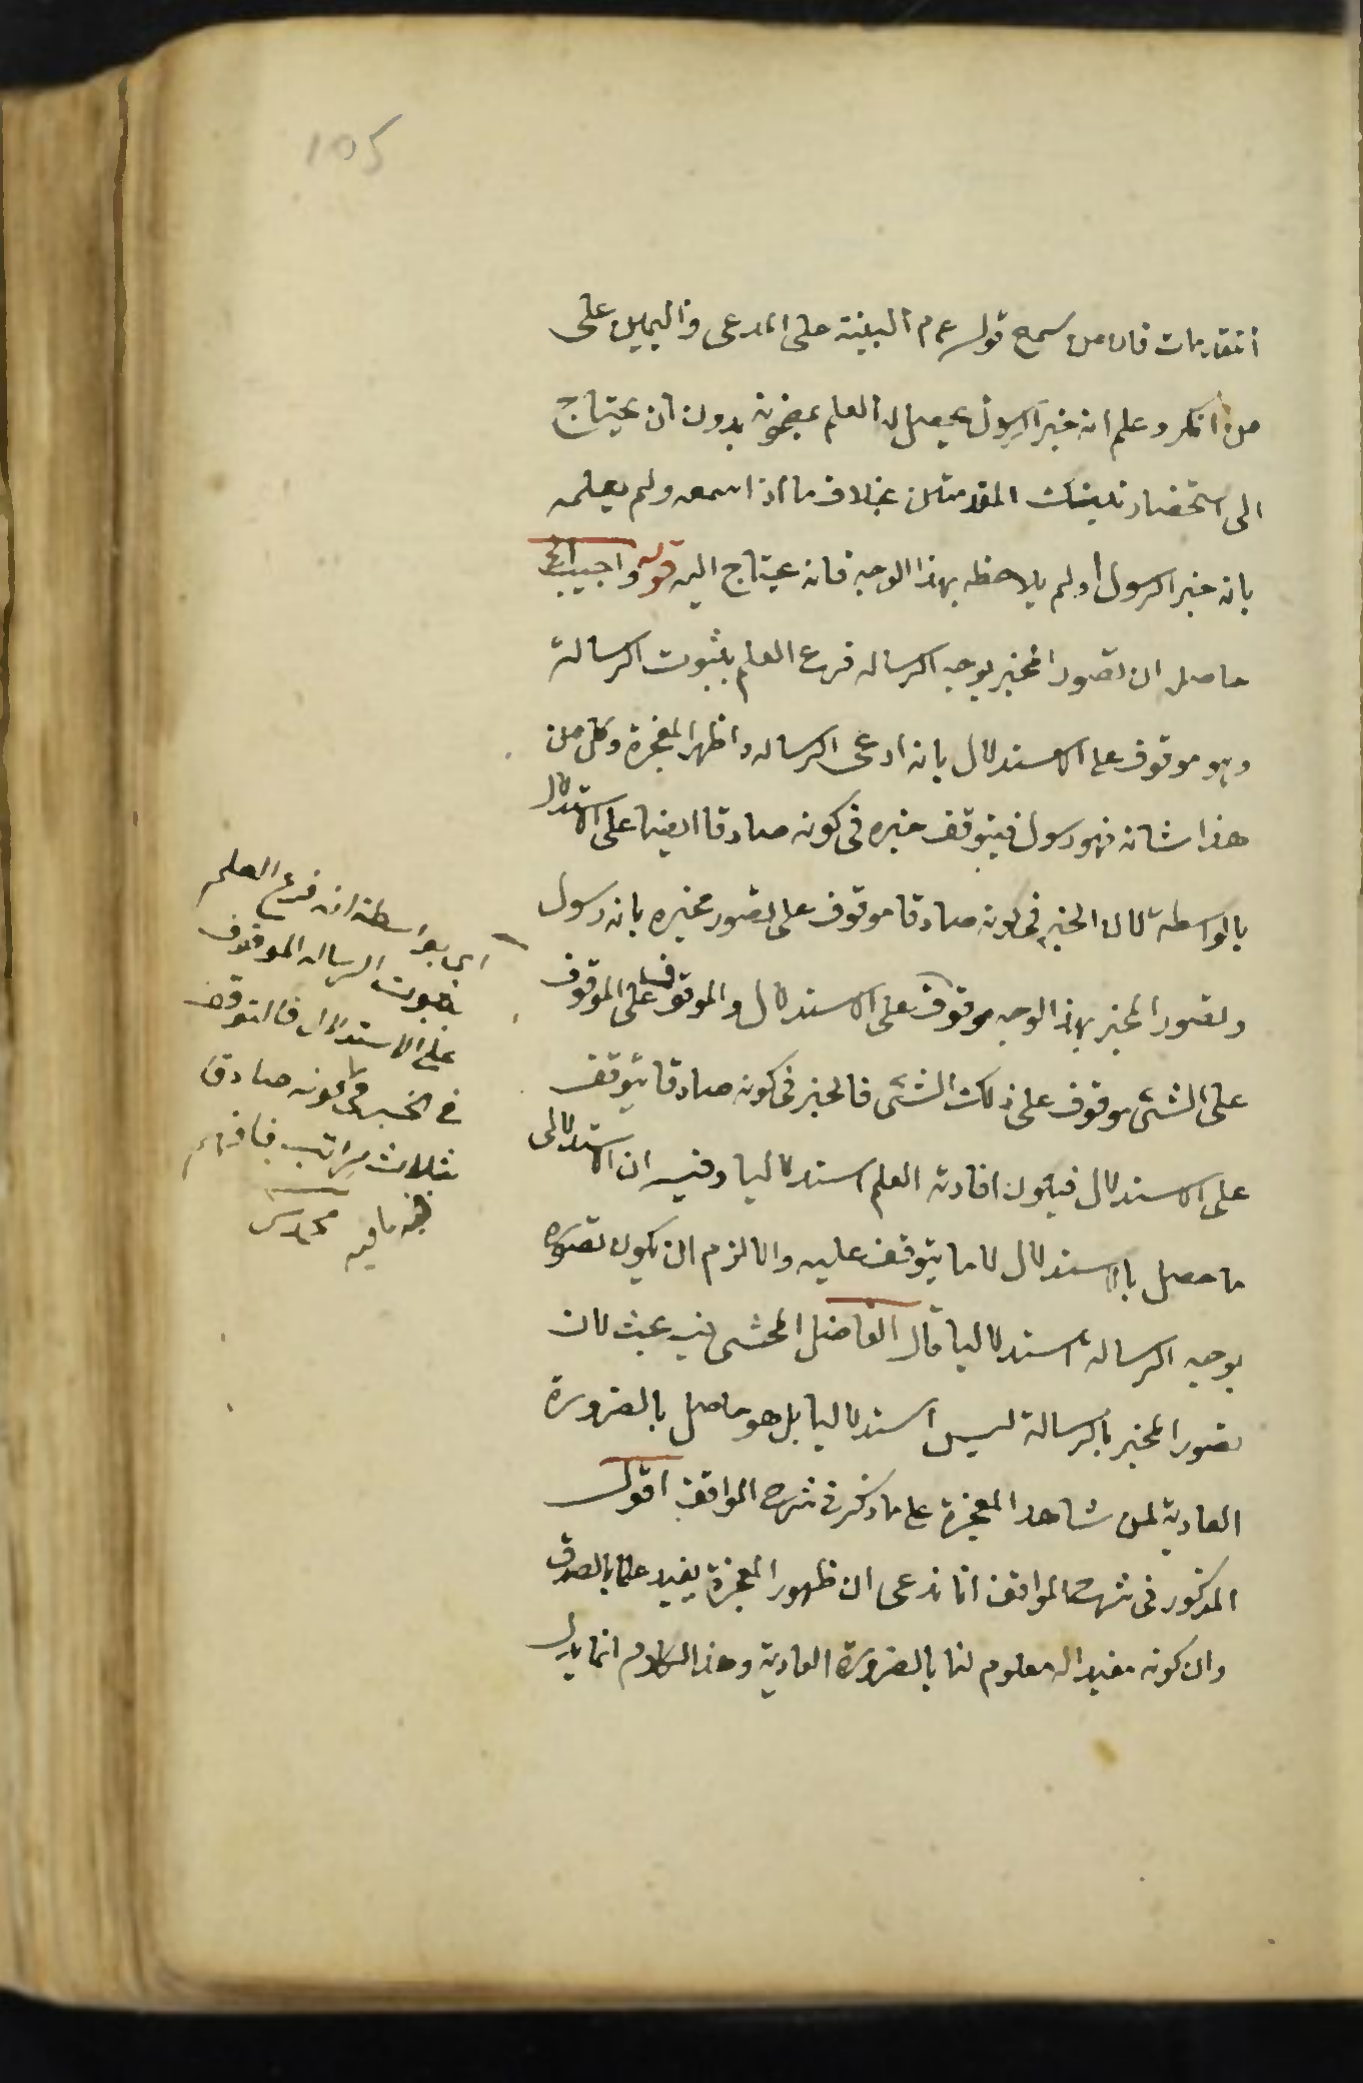 105
المقدمات فان من سمع قوله عم م البينة على المدعى واليمين على
من انكر وعلم انه خبر الرسول يحصل له العلم بمضمونه بدون ان يحتاج
الى استحضار تينك المقدمتين بخلاف ما اذا سمعه ولم يعلمه
بانه خبر الرسول او لم يلاحظه بهذا الوجه فانه يحتاج اليه قوله واجيب الخ
حاصله ان تصور المخبر بوجه الرسالة فرع العلم بثبوت الرسالة
وهو موقوف على الاستدلال بانه ادعى الرسالة واظهر المعجزة وكل من
هذا شانه فهو رسول فيتوقف خبره فى كونه صادقا ايضا على الاستدلال
بالواسطة لان الخبر فى كونه صادقا موقوف على تصور مخبره بانه رسول
وتصور المخبر بهذا الوجه موقوف على الاستدلال والموقوف على الموقوف
على الشئ موقوف على ذلك الشئ فالخبر فى كونه صادقا يتوقف
على الاستدلال فيكون افادته العلم استدلاليا وفيه ان الاستدلالى
ما حصل بالاستدلال لا ما يتوقف عليه والا لزم ان يكون تصوره
بوجه الرسالة استدلاليا قال الفاضل المحشى فيه بحث لان
تصور المخبر بالرسالة ليس استدلاليا بل هو حاصل بالضرورة
العادية لمن شاهد المعجزة على ما ذكر فى شرح المواقف اقول
المذكور فى شرح المواقف انا ندعى ان ظهور المعجزة يفيد علما بالصدق
وان كونه مفيدا له معلوم لنا بالضرورة العادية وهذا الكلام انما يدل
اى بواسطة انه فرع العلم
بثبوت الرسالة الموقوف
على الاستدلال فالتوقف
فى الخبر فى كونه صادقا
بثلاث مراتب فافهم
فيه ما فيه